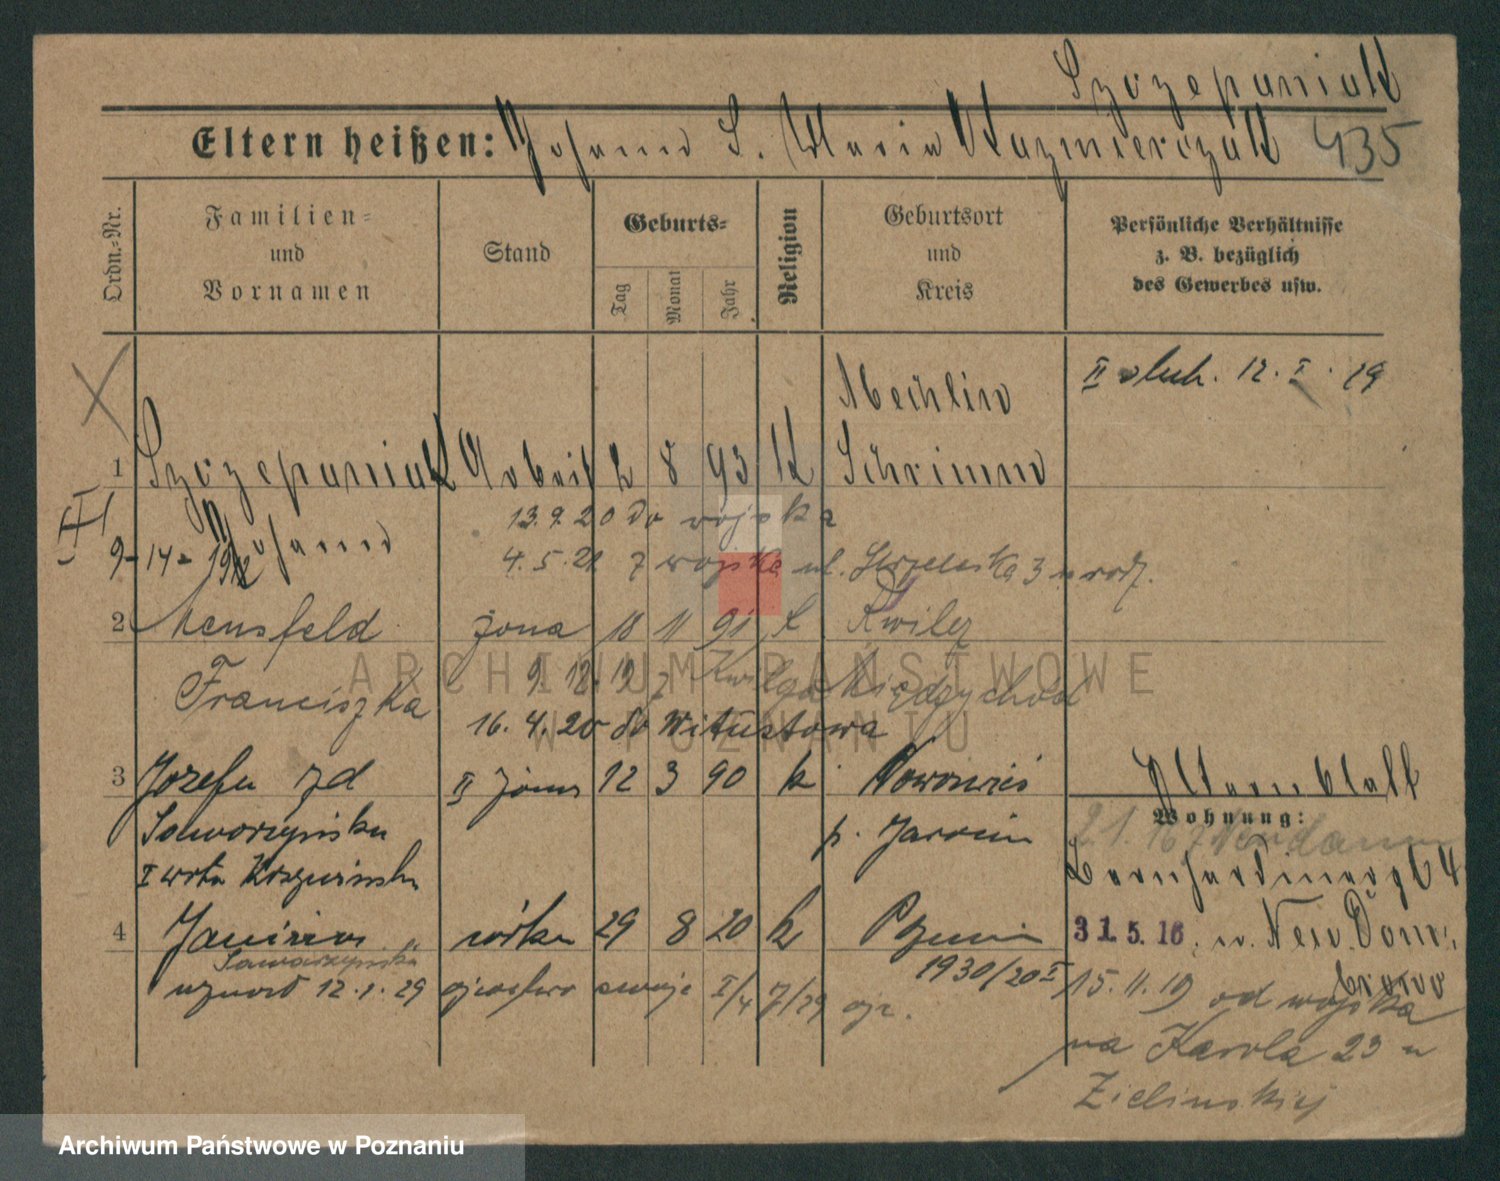 Szczepaniak
Eltern heißen: Johann S. Maria Kazmierczak 435
Ordn.-Nr.
Familien- und Vornamen
Stand
Geburts-
Tag
Monat
Jahr
Religion
Geburtsort und Kreis
Persönliche Verhältnisse
z. B. bezüglich
des Gewerbes usw.
II 12. I. 29
Mechlin
1 Szczepaniak Arbeit 2 8 93 K Schrimm
III
13.9.20 do wojska
9-14-1912 Johann
4.5.21 z wojska ul. Strzelecka 3 u rodz.
2 Mensfeld żona 18 11 91 k Kwilcz
Franciszka 9.12.19 z Międzychód
16.4.20 do Witustowa
3 Józefa zd II żona 12 3 90 k Nowawieś
Wohnung:
Saworzyńska p. Jarocin
21.16
I wto
Bernhardinerpl 4
4 córka 29 8 20 k
31.5.16.
Saworzyńska
1930/20 I
uznał 12.1.29 ojcostwo swoje I/4 7/29
15.11.19 od wojska
na Karola 23 u
Zielinskiej
ARCHIWUM PAŃSTWOWE
W POZNANIU
Archiwum Państwowe w Poznaniu